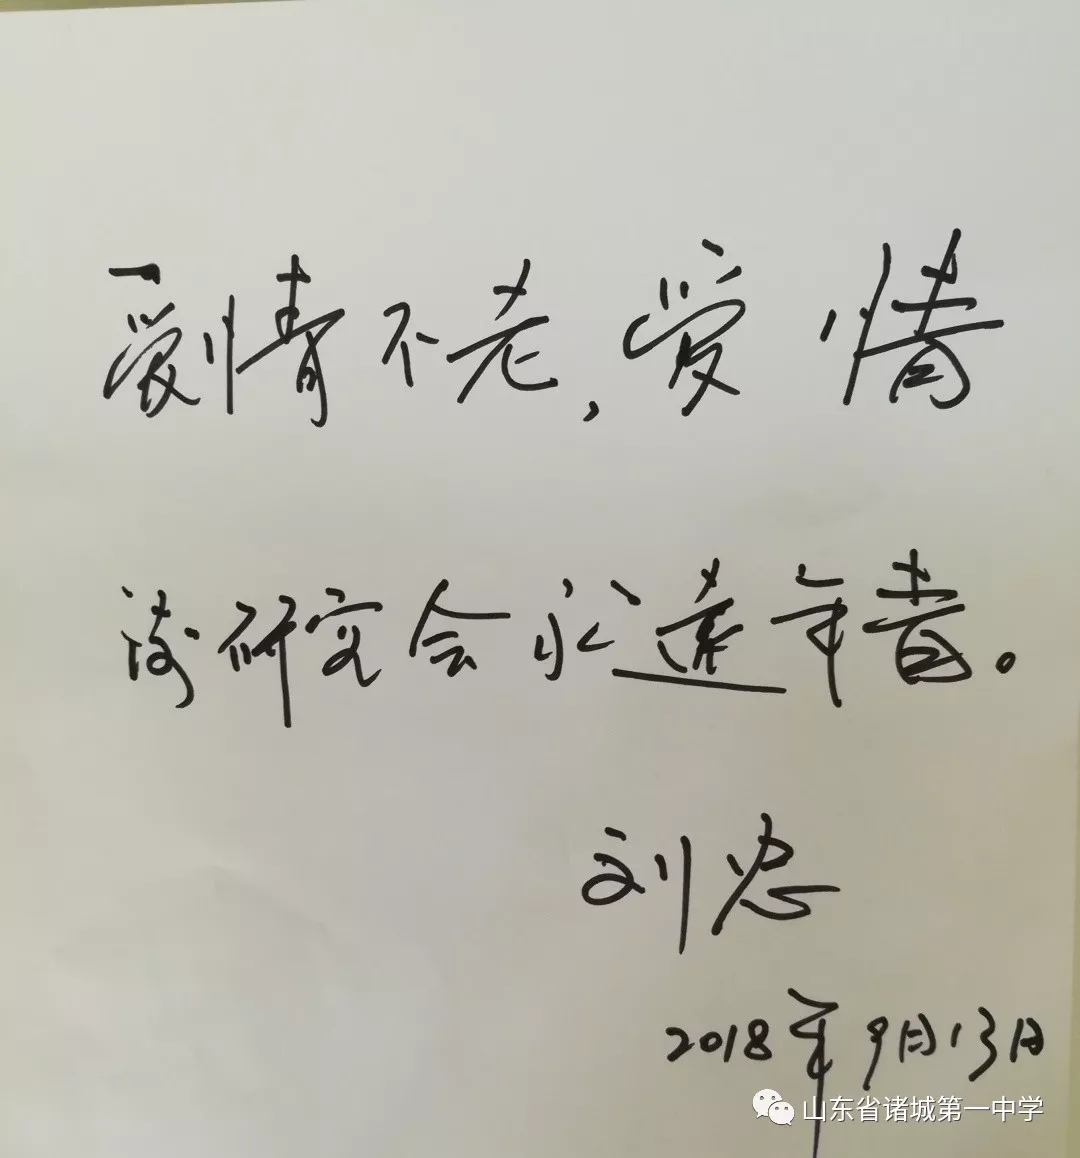 爱情不老,爱情
诗研究会永远年青。
刘忠
2018年9月13日
山东省诸城第一中学